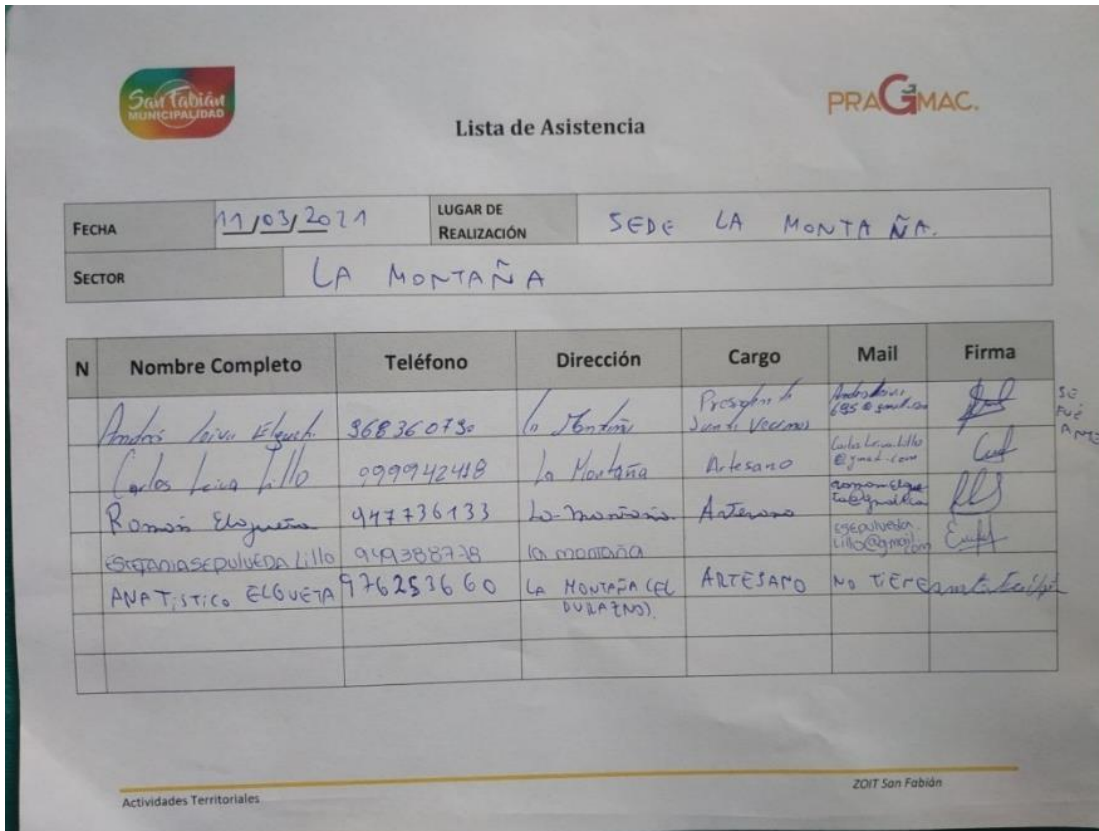 San Fabián
MUNICIPALIDAD
PRAGMAC.
Lista de Asistencia
FECHA 11/03/2021 LUGAR DE REALIZACIÓN SEDE LA MONTAÑA.
SECTOR LA MONTAÑA
N Nombre Completo Teléfono Dirección Cargo Mail Firma
Andrés Leiva 968360730 La Presidente Junta Vecinos
SE FUÉ
Carlos Leiva Lillo 999942418 La Montaña Artesano @gmail.com
Román Elgueta 947736133 La montaña Artesano
ESTEFANIA SEPULVEDA Lillo 949388778 la montaña esepulveda.lillo@gmail.com
ANATISTICO ELGUETA 976253660 LA MONTAÑA (EL DURAZNO). ARTESANO NO TIENE
Actividades Territoriales
ZOIT San Fabián